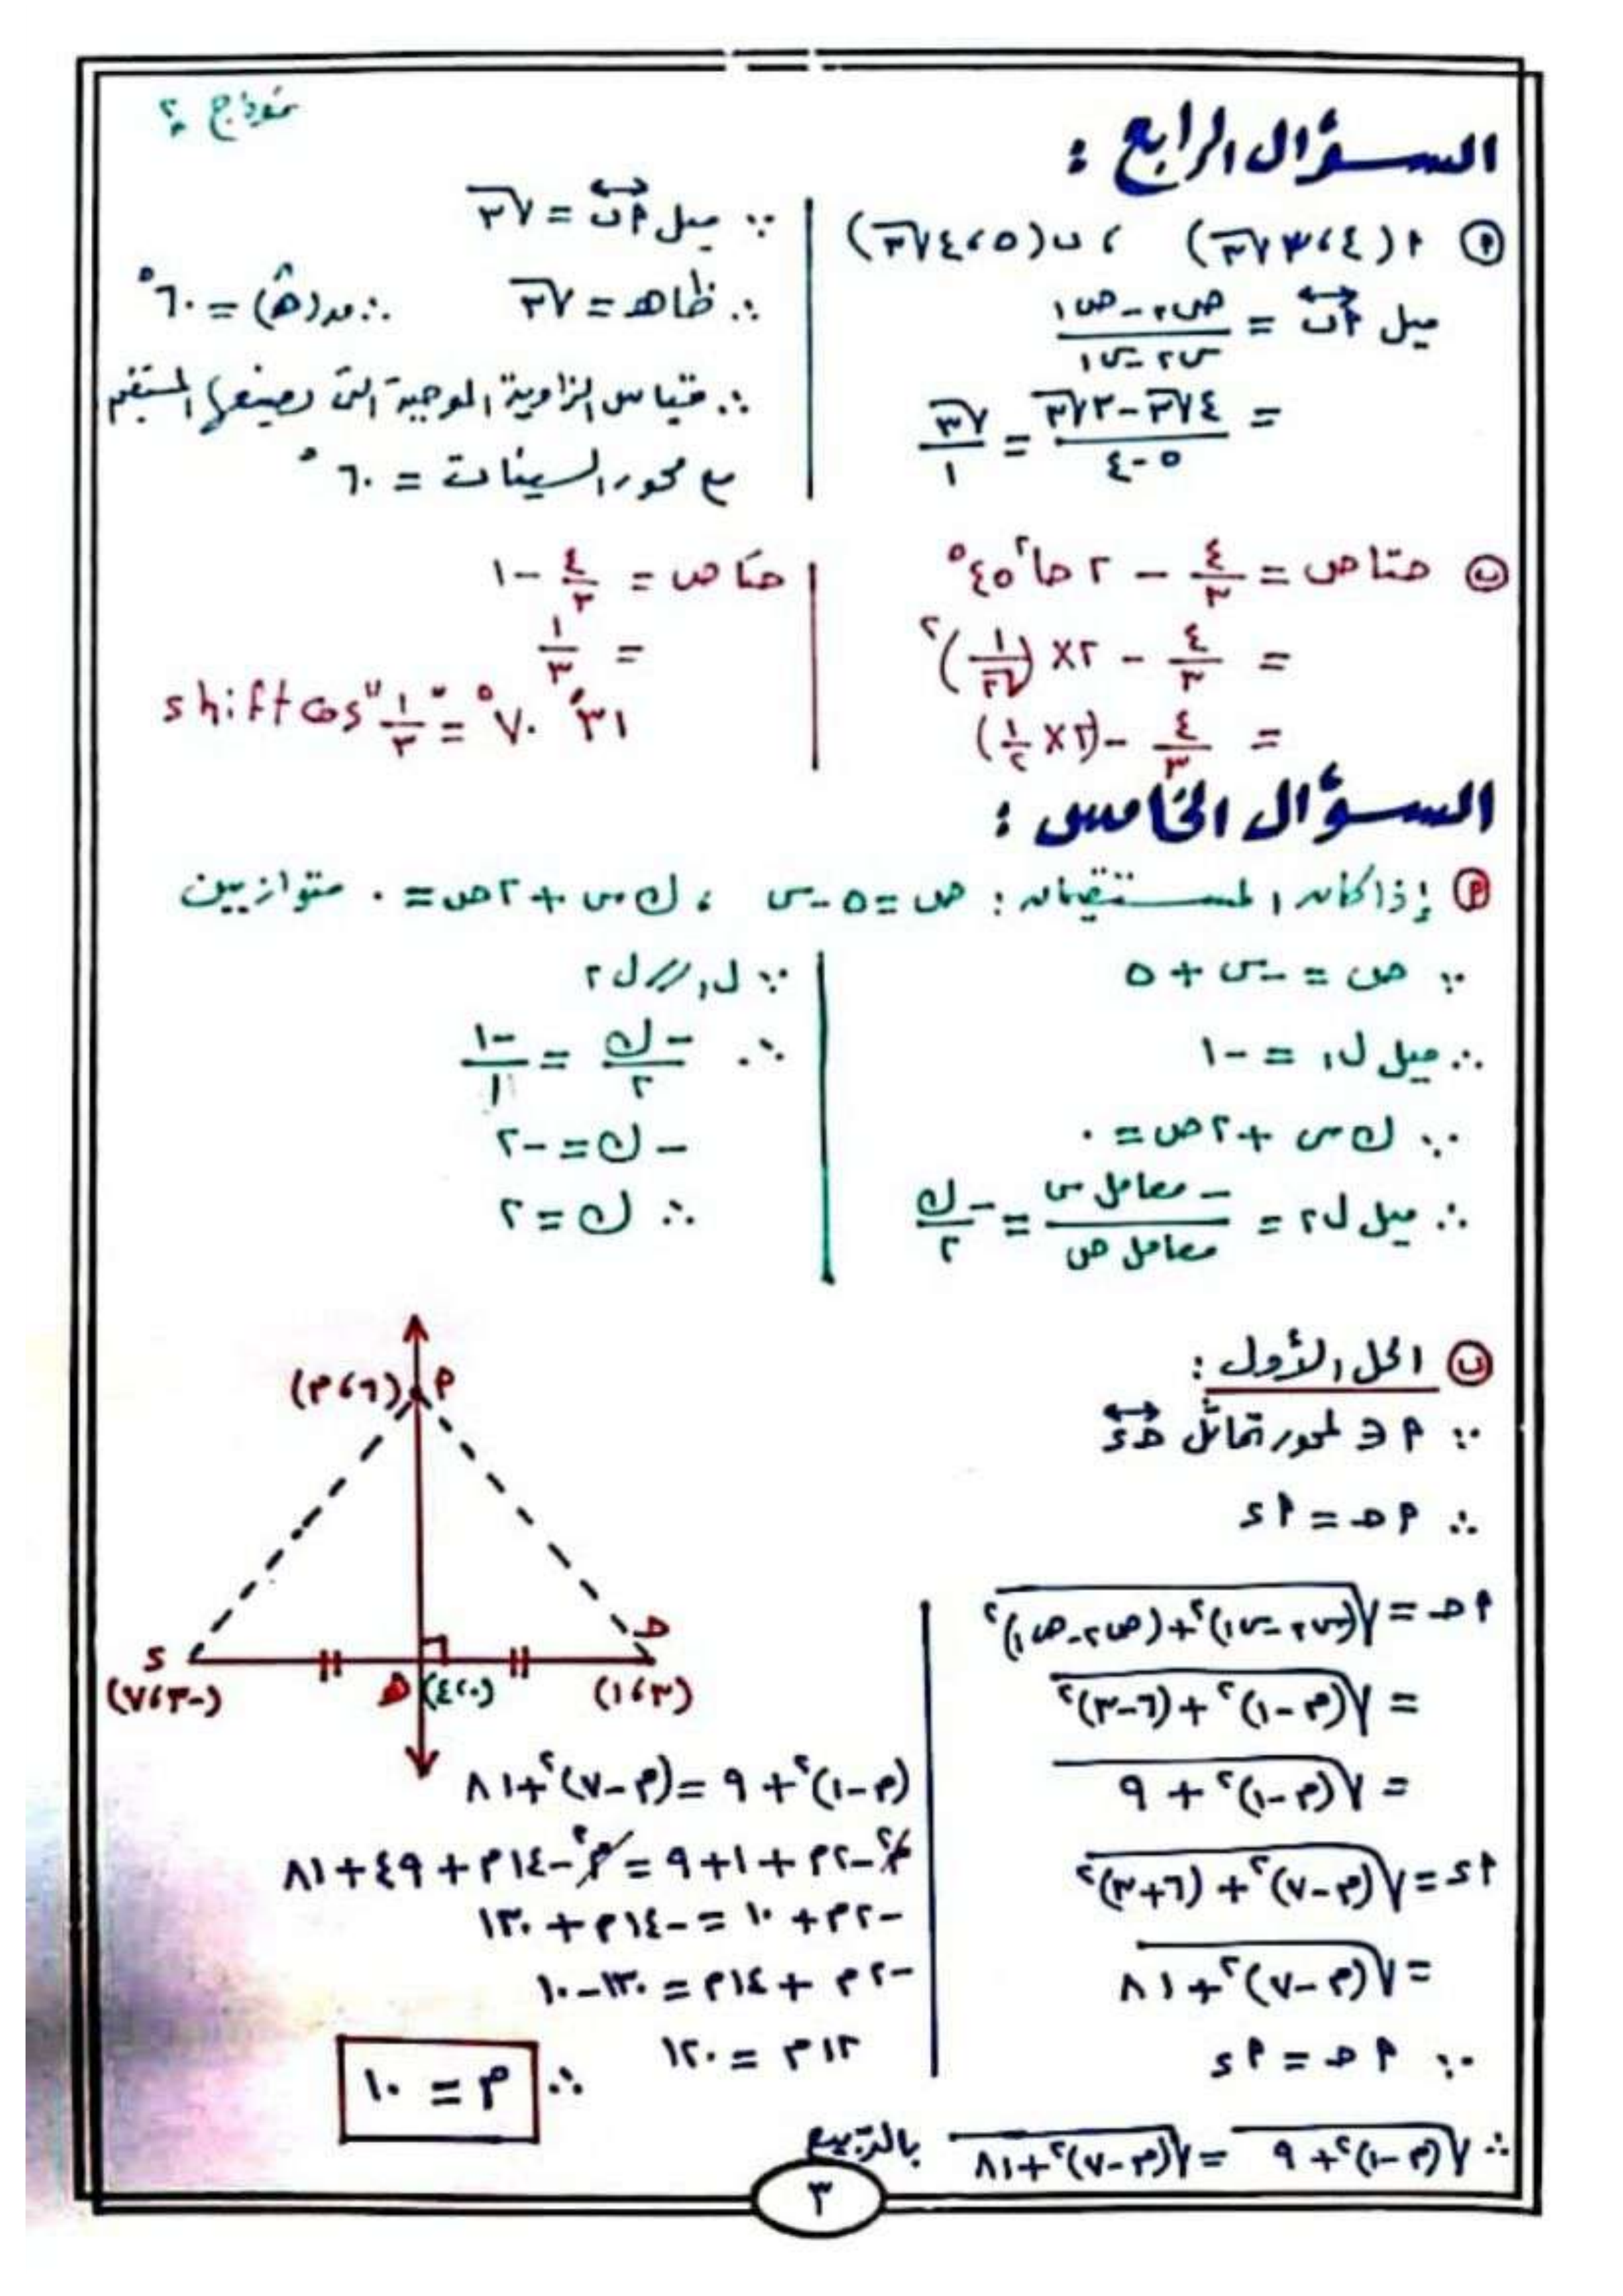 نموذج ٢
السؤال الرابع :
(أ) أ (٤ ، ٣√٣) ، ب (٥ ، ٤√٣)
ميل أب = (ص٢ - ص١) / (س٢ - س١)
= (٤√٣ - ٣√٣) / (٥ - ٤) = √٣ / ١
∵ ميل أب = √٣
∴ ظاهـ = √٣ ∴ مد(هـ) = ٦٠°
∴ قياس الزاوية الموجبة التى يصنعها المستقيم
مع محور السينات = ٦٠°
(ب) حتا ص = ٤/٣ - ٢ حا²٤٥°
= ٤/٣ - ٢ × (١/√٢)²
= ٤/٣ - (٢ × ١/٢)
حتا ص = ٤/٣ - ١
= ١/٣
shift cos "١/٣" = ٧٠° ٣١′
السؤال الخامس :
(أ) إذا كان المستقيمان : ص = ٥ - س ، ك س + ٢ ص = ٠ متوازيين
∵ ص = - س + ٥
∴ ميل ل١ = -١
∵ ك س + ٢ ص = ٠
∴ ميل ل٢ = - معامل س / معامل ص = -ك / ٢
∵ ل١ // ل٢
∴ -ك / ٢ = -١ / ١
- ك = -٢
∴ ك = ٢
(ب) الحل الأول :
∵ أ ∈ لمحور تماثل حـ د
∴ أ حـ = أ د
أ حـ = √((س٢ - س١)² + (ص٢ - ص١)²)
= √((م - ١)² + (٦ - ٣)²)
= √((م - ١)² + ٩)
أ د = √((م - ٧)² + (٦ + ٣)²)
= √((م - ٧)² + ٨١)
∵ أ حـ = أ د
∴ √((م - ١)² + ٩) = √((م - ٧)² + ٨١) بالتربيع
أ (٦ ، م)
د
حـ
(-٣ ، ٧)
هـ (٠ ، ٤)
(٣ ، ١)
(م - ١)² + ٩ = (م - ٧)² + ٨١
م² - ٢م + ١ + ٩ = م² - ١٤م + ٤٩ + ٨١
-٢م + ١٠ = -١٤م + ١٣٠
-٢م + ١٤م = ١٣٠ - ١٠
١٢م = ١٢٠
∴ م = ١٠
٣